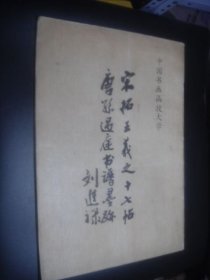 中国书画函授大学
宋拓王羲之十七帖
唐孙过庭书谱墨跡
刘